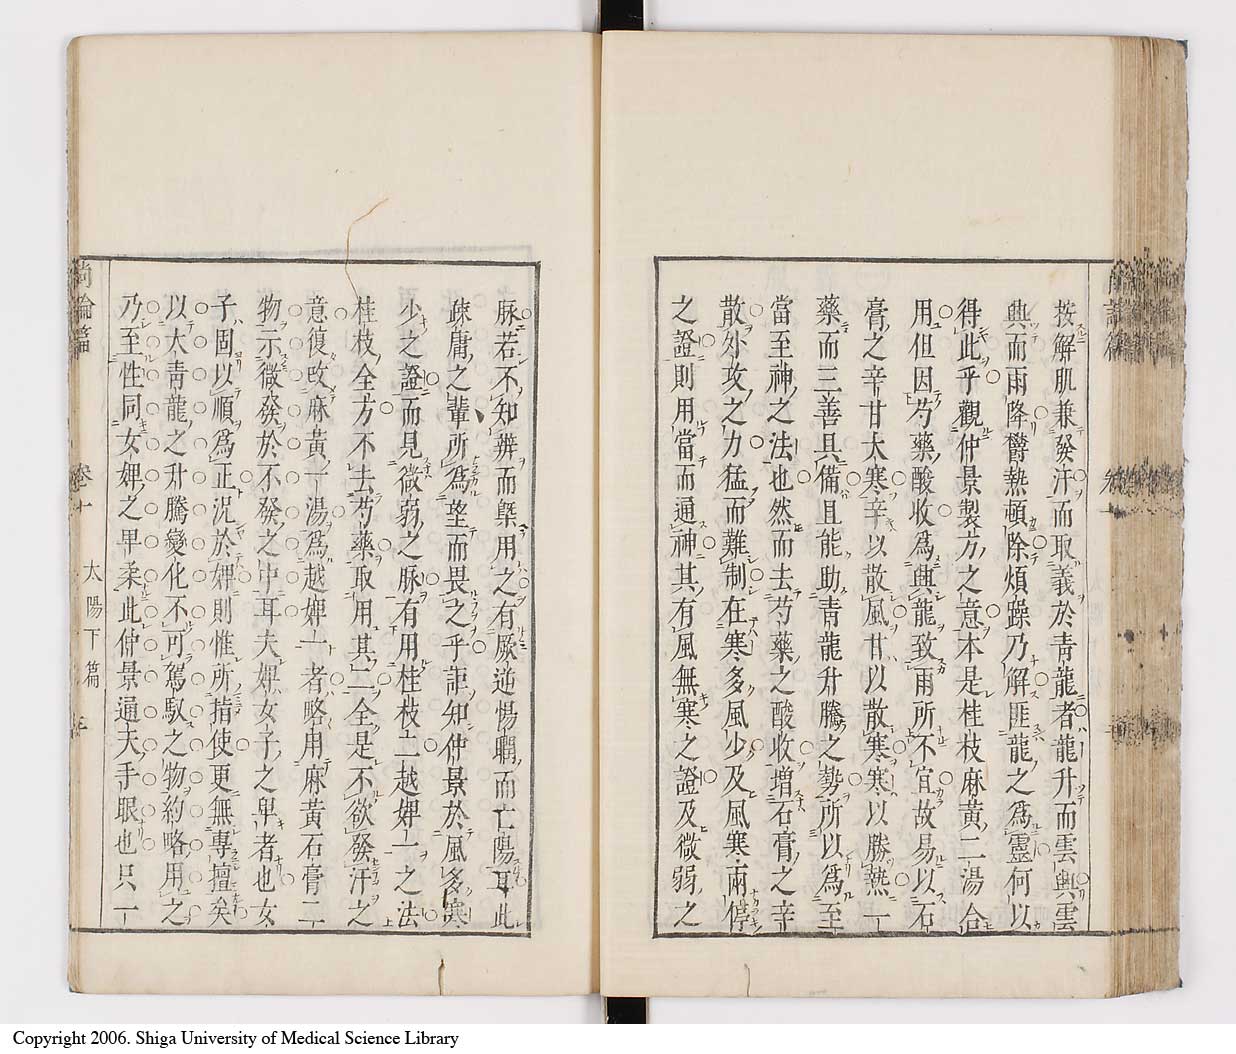 按解肌兼發汗而取義於青龍者龍升而雲興雲
興而雨降鬱熱頓除煩躁乃解匪龍之爲靈何以
得此乎觀仲景製方之意本是桂枝麻黃二湯合
用但因芍藥酸收爲興龍致雨所不宜故易以石
膏之辛甘大寒辛以散風甘以散寒寒以勝熱一
藥而三善具備且能助青龍升騰之勢所以爲至
當至神之法也然而去芍藥之酸收增石膏之辛
散外攻之力猛而難制在寒多風少及風寒兩停
之證則用當而通神其有風無寒之證及微弱之
脉若不知辨而槩用之有厥逆惕瞤而亡陽耳此
疎庸之輩所爲望而畏之乎詎知仲景於風多寒
少之證而見微弱之脉有用桂枝二越婢一之法
桂枝全方不去芍藥取用其二全是不欲發汗之
意復改麻黃一湯爲越婢一者略用麻黃石膏二
物示微發於不發之中耳夫婢女子之卑者也女
子固以順爲正況於婢則惟所指使更無專擅矣
以大青龍之升騰變化不可駕馭之物約略用之
乃至性同女婢之卑柔此仲景通天手眼也只一
尚論篇 卷十 太陽下篇 三
Copyright 2006. Shiga University of Medical Science Library